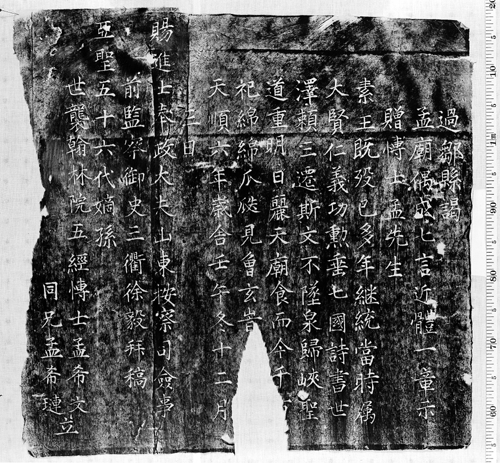 過鄒縣謁
孟廟偶成七言近體一章示
贈博士孟先生
素王既歿已多年継統當時属
大賢仁義功勲垂七國詩書世
澤頼三遷斯文不墜泉歸峽聖
道重明日麗天廟食而今千
祀綿綿瓜瓞見曾玄旹
天順六年歳舍壬午冬十二月
三日
賜進士奉政大夫山東按察司僉事
前監察御史三衢徐毅拜稿
亞聖五十六代嫡孫
世襲翰林院五經博士孟希文立
同兄孟希璉